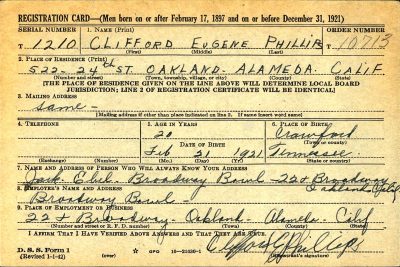 REGISTRATION CARD—(Men born on or after February 17, 1897 and on or before December 31, 1921)
SERIAL NUMBER 1. NAME (Print) ORDER NUMBER
T 1210 CLIFFORD EUGENE PHILLIPS T 10713
(First) (Middle) (Last)
2. PLACE OF RESIDENCE (Print)
522 24th ST. OAKLAND ALAMEDA CALIF
(Number and street) (Town, township, village, or city) (County) (State)
[THE PLACE OF RESIDENCE GIVEN ON THE LINE ABOVE WILL DETERMINE LOCAL BOARD
JURISDICTION; LINE 2 OF REGISTRATION CERTIFICATE WILL BE IDENTICAL]
3. MAILING ADDRESS
Same -
[Mailing address if other than place indicated on line 2. If same insert word same]
4. TELEPHONE 5. AGE IN YEARS 6. PLACE OF BIRTH
20 Crawford
DATE OF BIRTH (Town or county)
Feb 21 1921 Tennessee
(Exchange) (Number) (Mo.) (Day) (Yr.) (State or country)
7. NAME AND ADDRESS OF PERSON WHO WILL ALWAYS KNOW YOUR ADDRESS
Jack Broadway Bowl - 22 & Broadway
Oakland Calif
8. EMPLOYER'S NAME AND ADDRESS
Broadway Bowl -
9. PLACE OF EMPLOYMENT OR BUSINESS
22 & Broadway - Oakland - Alameda - Calif
(Number and street or R. F. D. number) (Town) (County) (State)
I AFFIRM THAT I HAVE VERIFIED ABOVE ANSWERS AND THAT THEY ARE TRUE.
D. S. S. Form 1 GPO
(Revised 1-1-42) (over) Clifford E Phillips
(Registrant's signature)